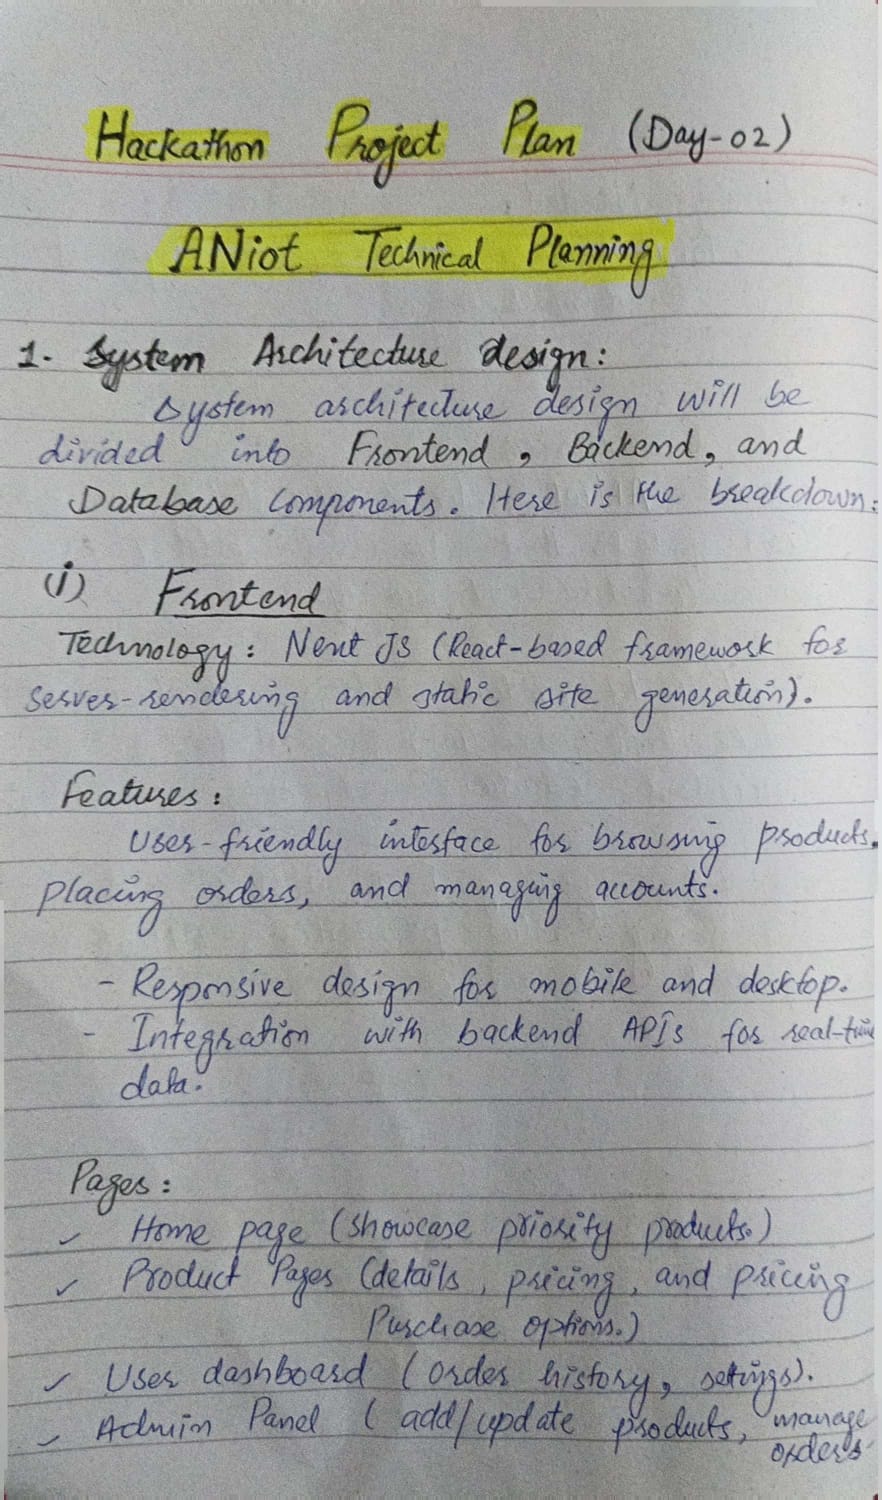 Hackathon Project Plan (Day-02)
ANiot Technical Planning
1. System Architecture design:
System architecture design will be
divided into Frontend, Backend, and
Database Components. Here is the breakdown:
(i) Frontend
Technology: Next JS (React-based framework for
server-rendering and static site generation).
Features:
User-friendly interface for browsing products,
placing orders, and managing accounts.
- Responsive design for mobile and desktop.
- Integration with backend APIs for real-time
data.
Pages:
✓ Home page (showcase priority products.)
✓ Product Pages (details, pricing, and pricing
Purchase options.)
✓ User dashboard (order history, settings).
✓ Admin Panel (add/update products, manage
orders